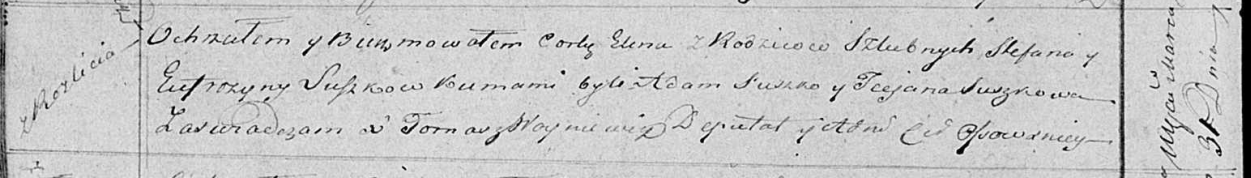 z Rozlicia
Ochrzciłem y Birzmowałem Corkę Elena z Rodzicow Szlubnych Stefana y
Eufrozyny Suszkow Kumami byli Adam Suszko y Tecjana Suszkowa
Zaswiadczam X Tomasz Woyniewicz Deputat y Adm Cer Osowskiey
Miąca Marca
31 Dnia